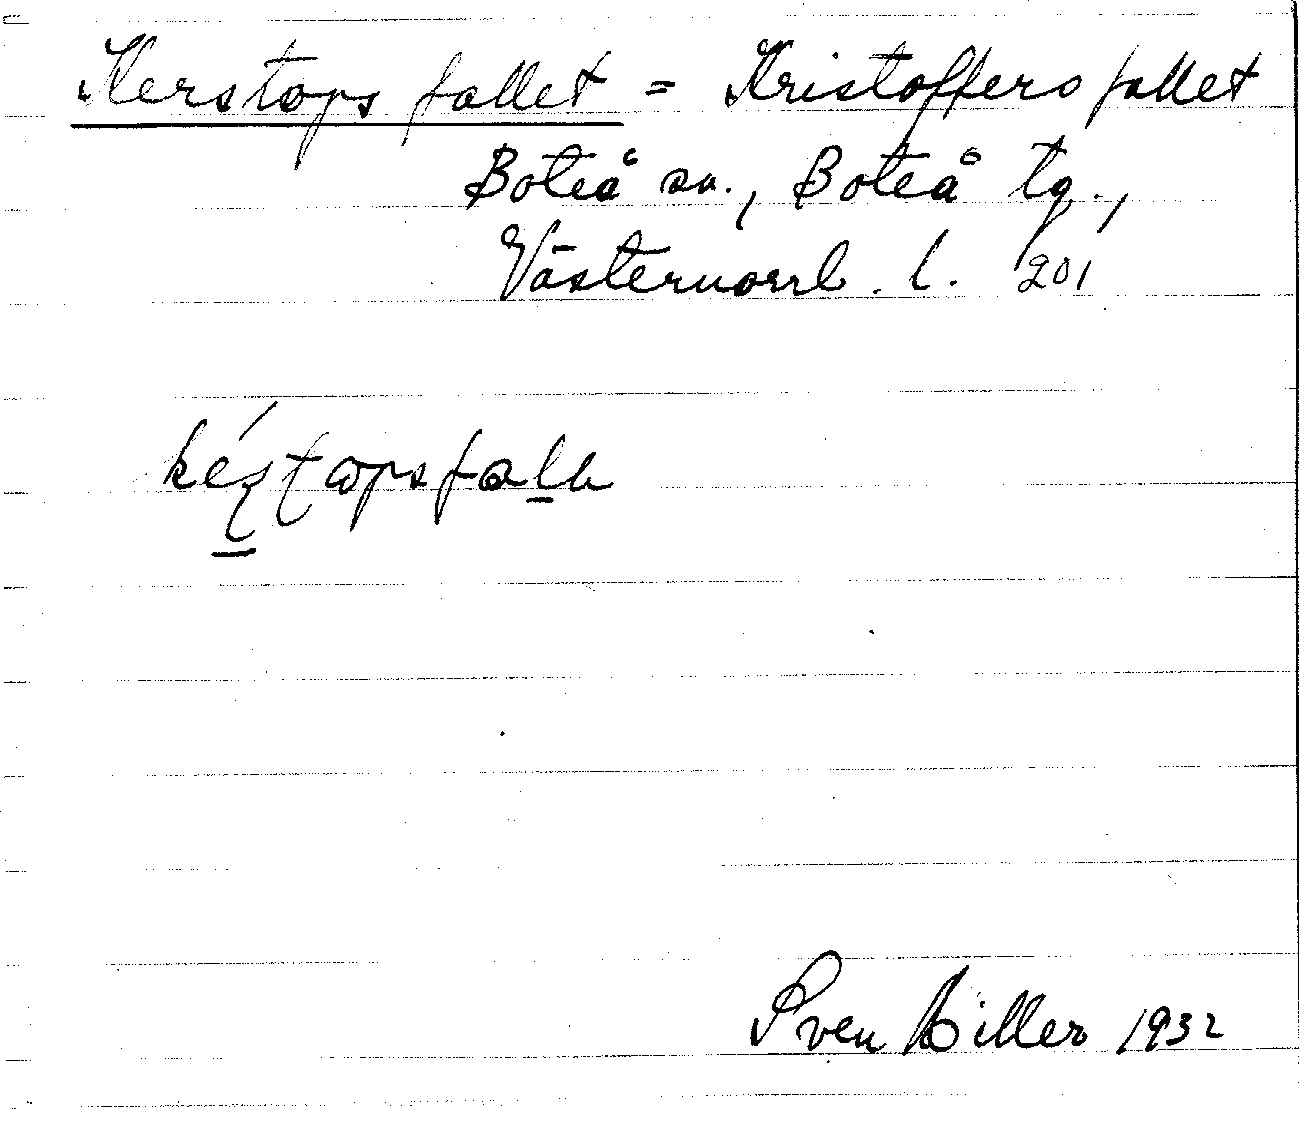 Kerstops fallet = Kristoffers fallet
Boteå sn., Boteå tg.,
Västernorrl. l. 201
Sven Hiller 1932